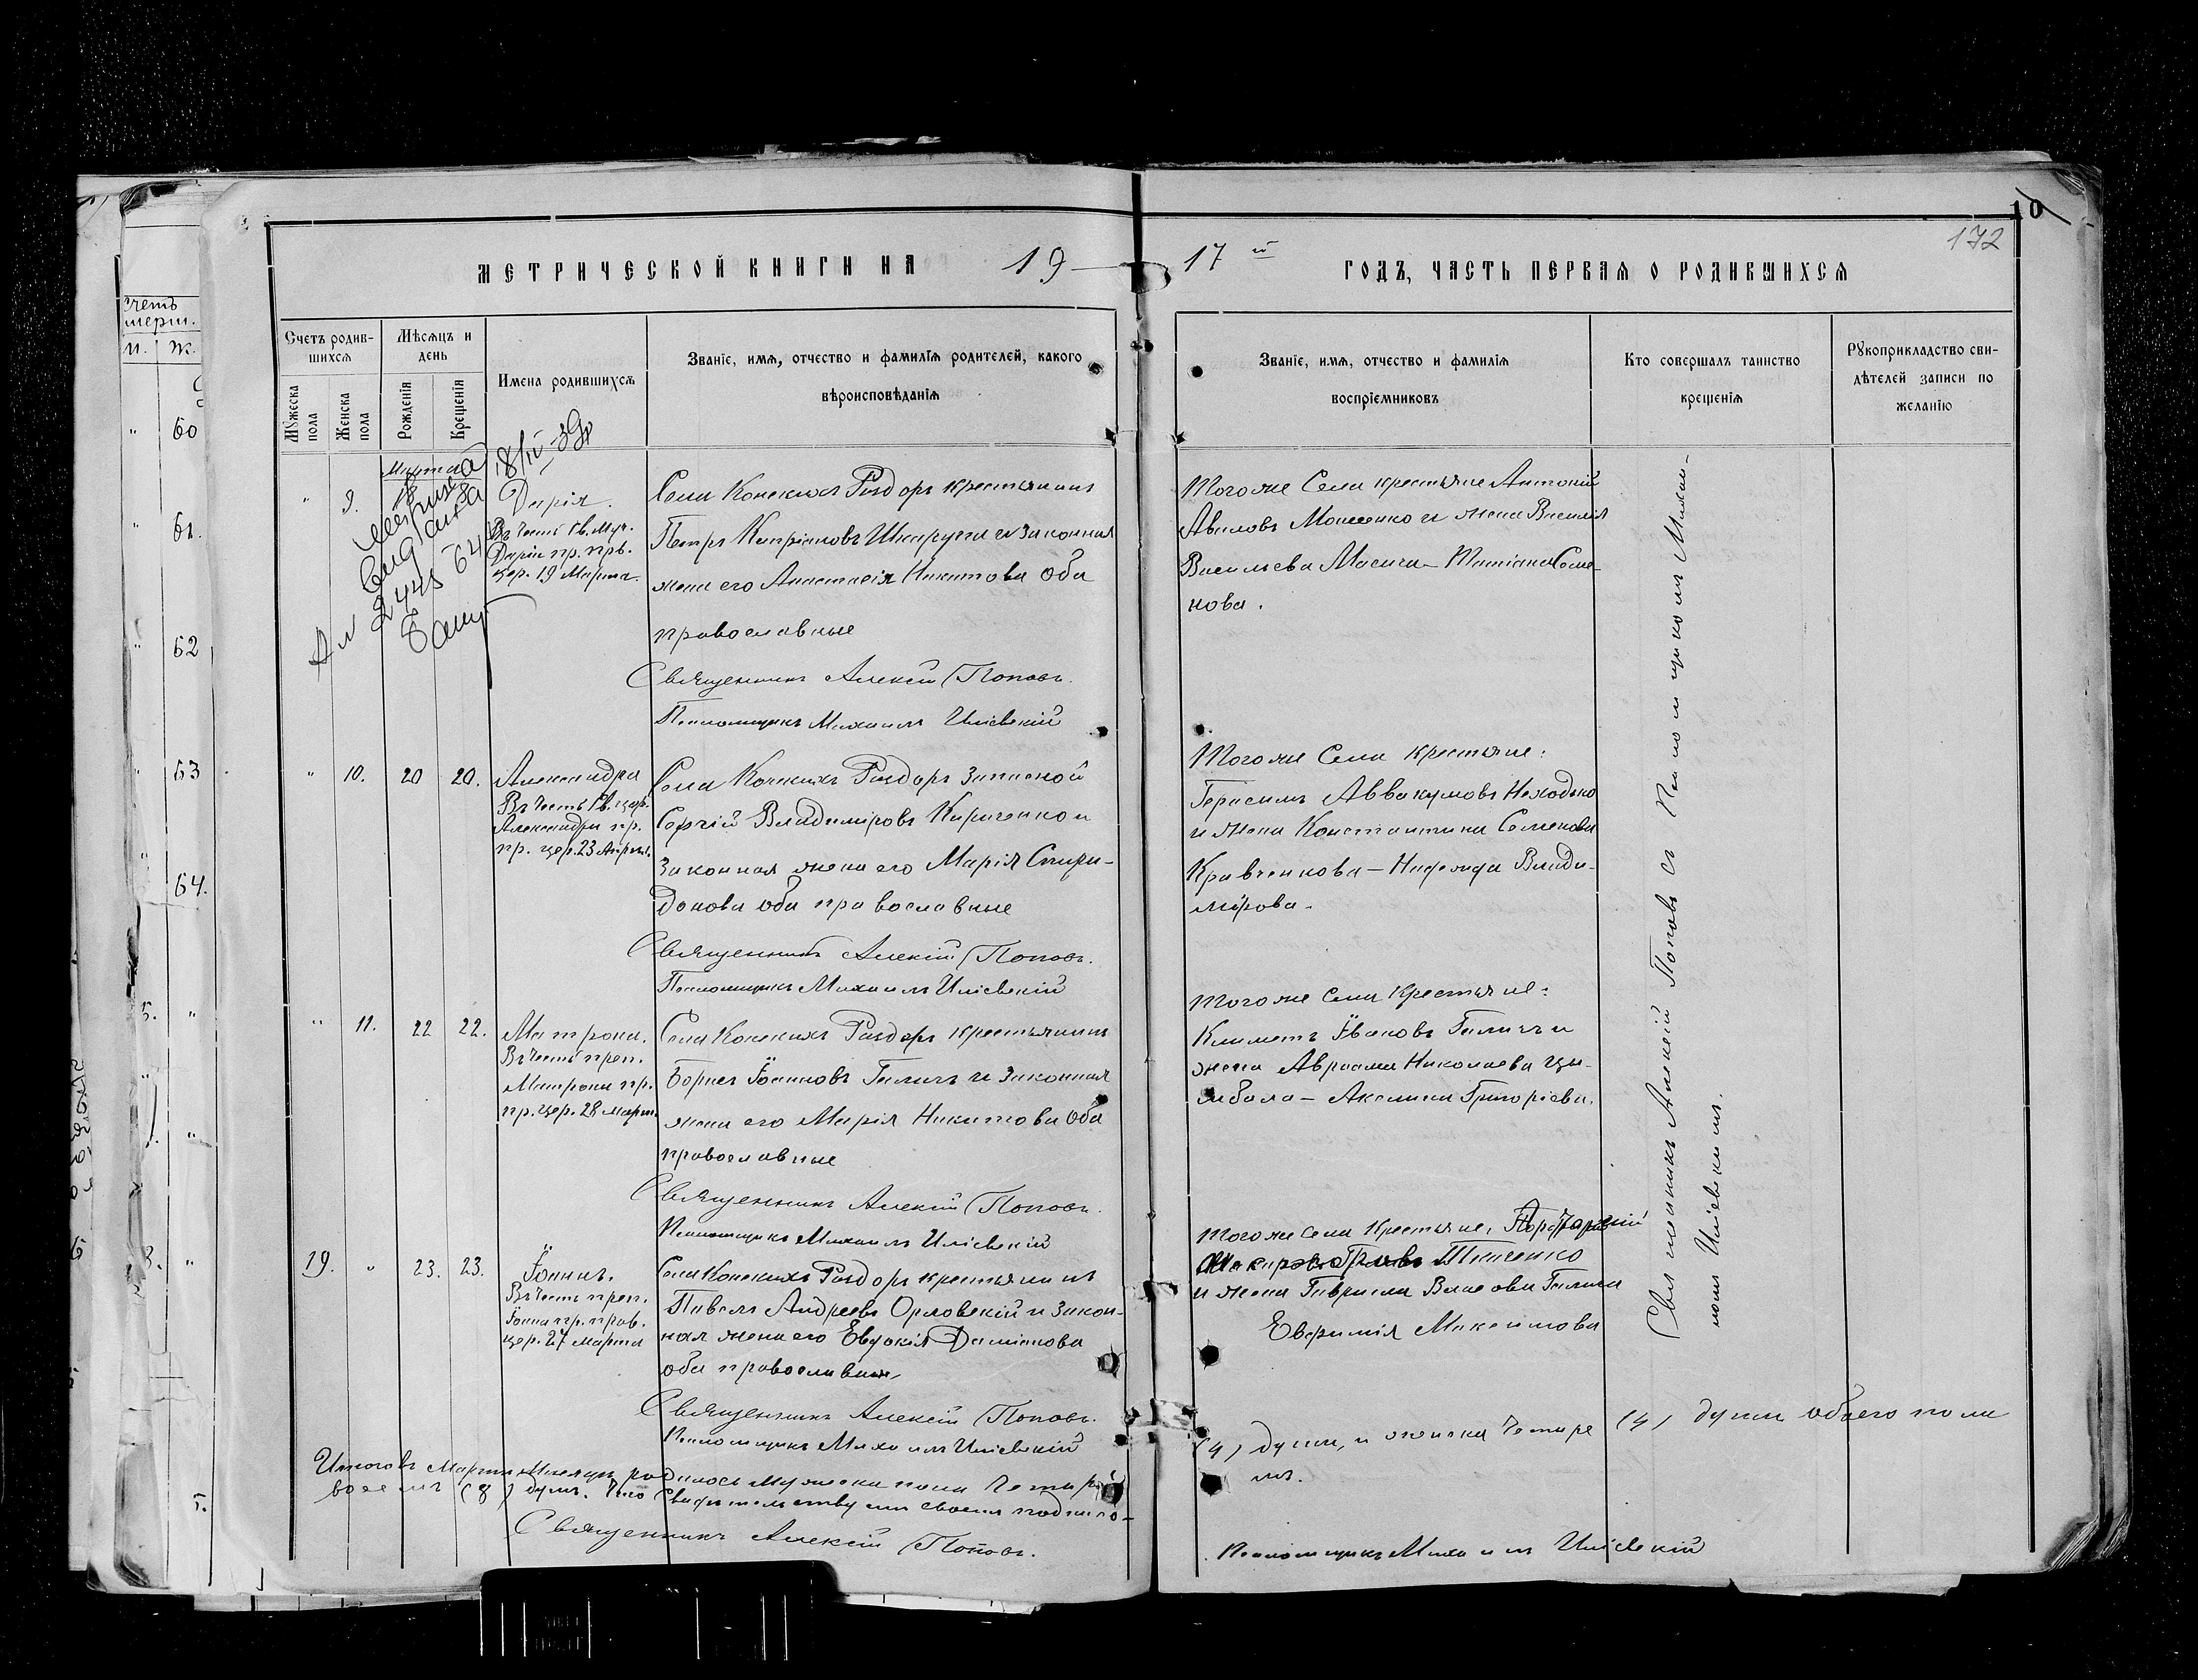 10
172
МЕТРИЧЕСКОЙ КНИГИ НА 19
17 й ГОДЪ, ЧАСТЬ ПЕРВАЯ О РОДИВШИХСЯ
Счетъ родившихся
Мужеска пола
Женска пола
Мѣсяцъ и день
Рожденія
Крещенія
Имена родившихся
Званіе, имя, отчество и фамилія родителей, какого
вѣроисповѣданія
Званіе, имя, отчество и фамилія
воспріемниковъ
Кто совершалъ таинство
крещенія
Рукоприкладство сви-
дѣтелей записи по
желанію
Счетъ
М. Ж.
60
61.
62
63
64.
Марта
" 9. 18
Дарія.
Въ честь св. муч.
Даріи пр. прв.
цер. 19 Марта.
Села Конскихъ Раздоръ крестьянинъ
Петръ Капріановъ и законная
жена его Анастасія Никитова оба
православные
Священникъ Алексій Поповъ.
Псаломщикъ Михаилъ Иліевскій
Того же Села крестьяне Антоній
Авиловъ Мошенко и жена Василія
Васильева Масича - Татіана Семе-
нова.
" 10. 20 20.
Александра
Въ честь св. цар.
Александры пр.
пр. цер. 23 Апрѣл.
Села Конскихъ Раздоръ запасной
Сергій Владиміровъ Кириченко и
законная жена его Марія Спири-
донова оба православные
Священникъ Алексій Поповъ.
Псаломщикъ Михаилъ Иліевскій
Того же Села крестьяне:
Герасимъ Аввакумовъ Находько
и жена Константина Семенова
Кравченкова - Надежда Влади-
мірова.
" 11. 22 22.
Матрона.
Въ честь преп.
Матроны пр.
пр. цер. 28 март.
Села Конскихъ Раздоръ крестьянинъ
Борисъ Іоанновъ Галичъ и законная
жена его Марія Никитова оба
православные
Священникъ Алексій Поповъ.
Псаломщикъ Михаилъ Иліевскій
Того же Села крестьяне:
Климетъ Івановъ Галичъ и
жена Авраама Николаева Цы-
мбала - Акилина Григоріева.
19. " 23. 23.
Іоаннъ.
Въ честь преп.
Іоанна пр. прав.
цер. 27 марта
Села Конскихъ Раздоръ крестьянинъ
Павелъ Андреевъ Орловскій и закон-
ная жена его Евдокія Даміанова
оба православные
Священникъ Алексій Поповъ.
Псаломщикъ Михаилъ Иліевскій
Того же Села крестьяне,
Ткаченко
и жена Гавріила Власова Галича
Евфимія Максимова
Священникъ Алексій Поповъ съ Псаломщикомъ Михаи-
ломъ Иліевскимъ.
Итого въ Мартѣ Мѣсяцѣ родилось мужеска пола четыре
(4) души, и женска четыре (4) души обоего пола
восемь (8) душъ. Что свидѣтельствуемъ своимъ подписо-
мъ.
Священникъ Алексій Поповъ.
Псаломщикъ Михаилъ Иліевскій